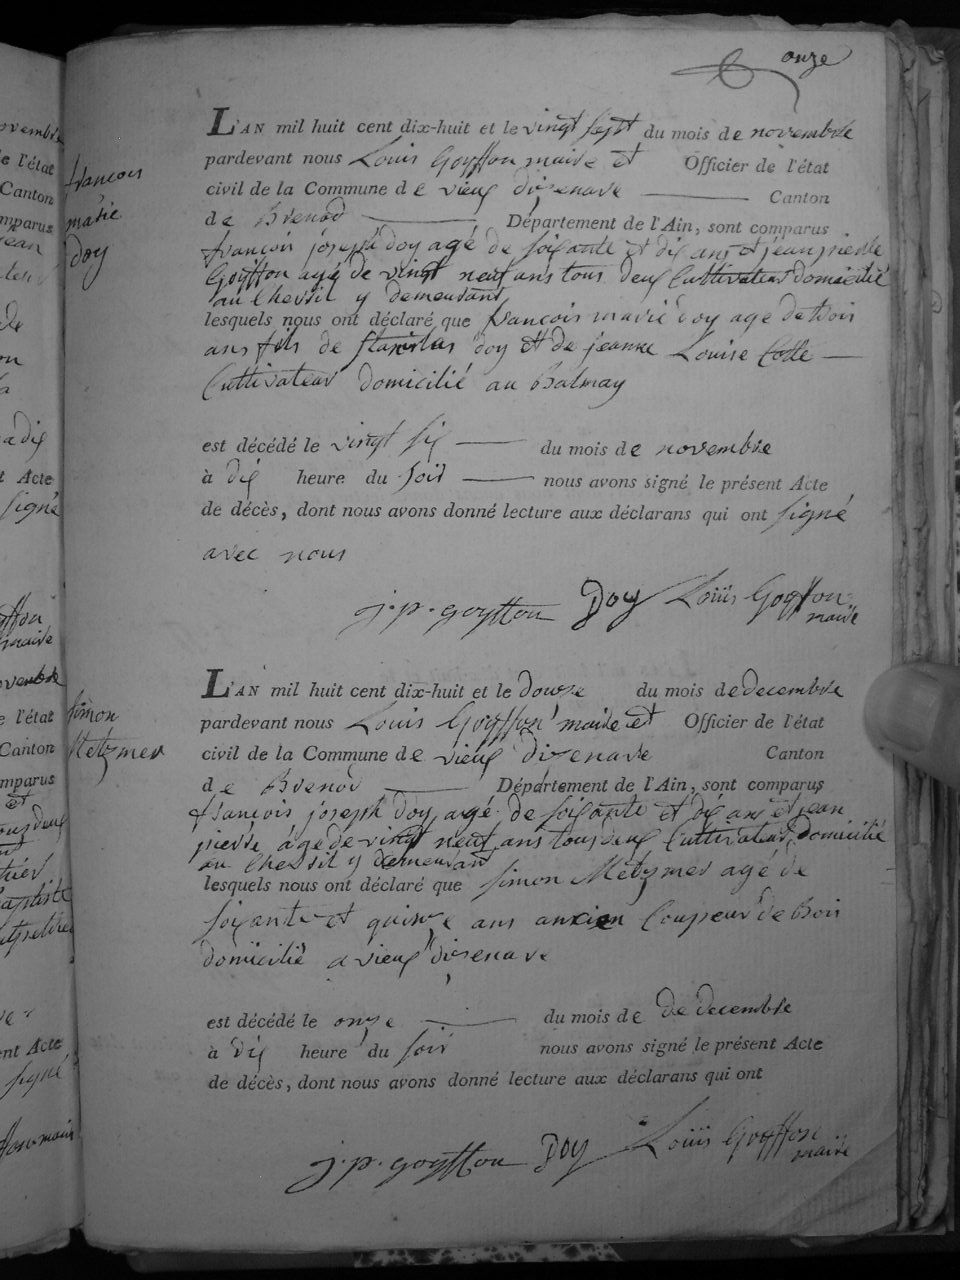 onze
L'AN mil huit cent dix-huit et le vingt sept du mois de novembre
pardevant nous Louis Goyffon maire et Officier de l'état
civil de la Commune de vieux dizenave Canton
de Brenod Département de l'Ain, sont comparus
françois joseph doy agé de soixante et dix ans et jean pierre
Goyffon agé de vingt neuf ans tous deux Cultivateur domicilié
au Chevril y demeurant
lesquels nous ont déclaré que françois marie doy age de trois
ans fils de Stanislas doy et de jeanne Louise Cotte
Cultivateur domicilié au Balmay
est décédé le vingt six du mois de novembre
à dix heure du soir nous avons signé le présent Acte
de décès, dont nous avons donné lecture aux déclarans qui ont signé
avec nous
j. p. goyffon Doy Louis Goyffon
maire
françois
marie
doy
L'AN mil huit cent dix-huit et le douze du mois de decembre
pardevant nous Louis Goyffon maire et Officier de l'état
civil de la Commune de vieux dizenave Canton
de Brenod Département de l'Ain, sont comparus
françois joseph doy agé de soixante et dix ans et jean
pierre agé de vingt neuf ans tous deux Cultivateur domicilié
au Chevril y demeurant
lesquels nous ont déclaré que Simon Metzmer agé de
soixante et quinze ans ancien Coupeur de Bois
domicilié a vieux dizenave
est décédé le onze du mois de de decembre
à dix heure du soir nous avons signé le présent Acte
de décès, dont nous avons donné lecture aux déclarans qui ont
j. p. goyffon Doy Louis Goyffon
maire
Simon
Metzmer